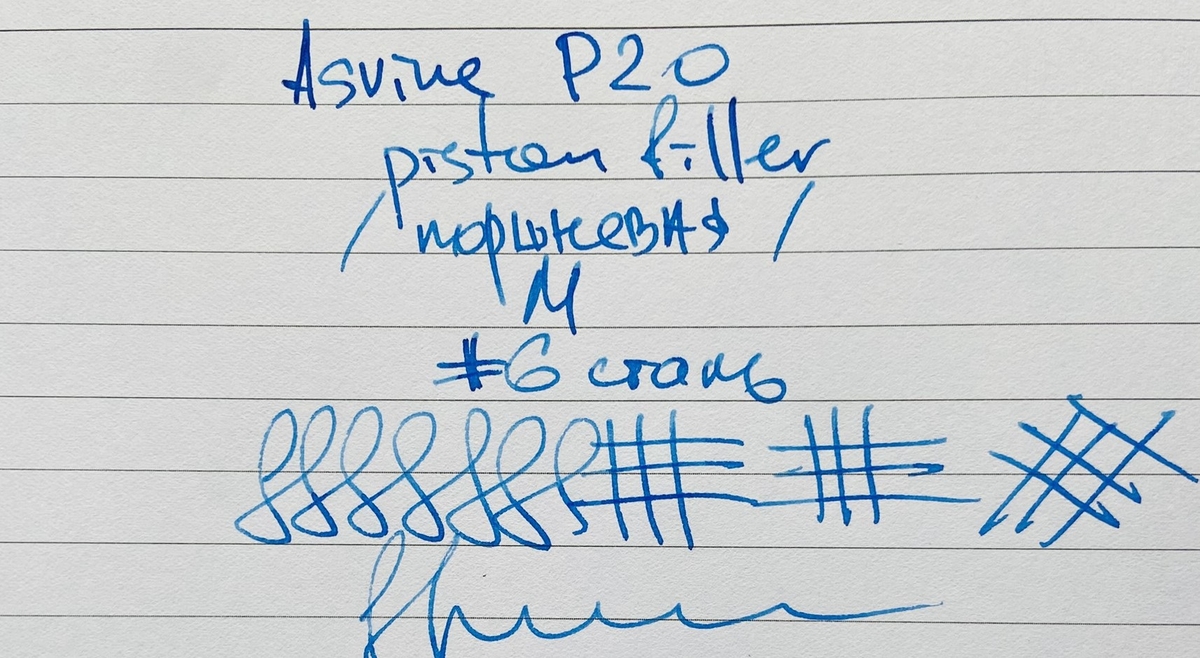 Asvine P20
piston filler
/ поршневая /
M
#6 сталь